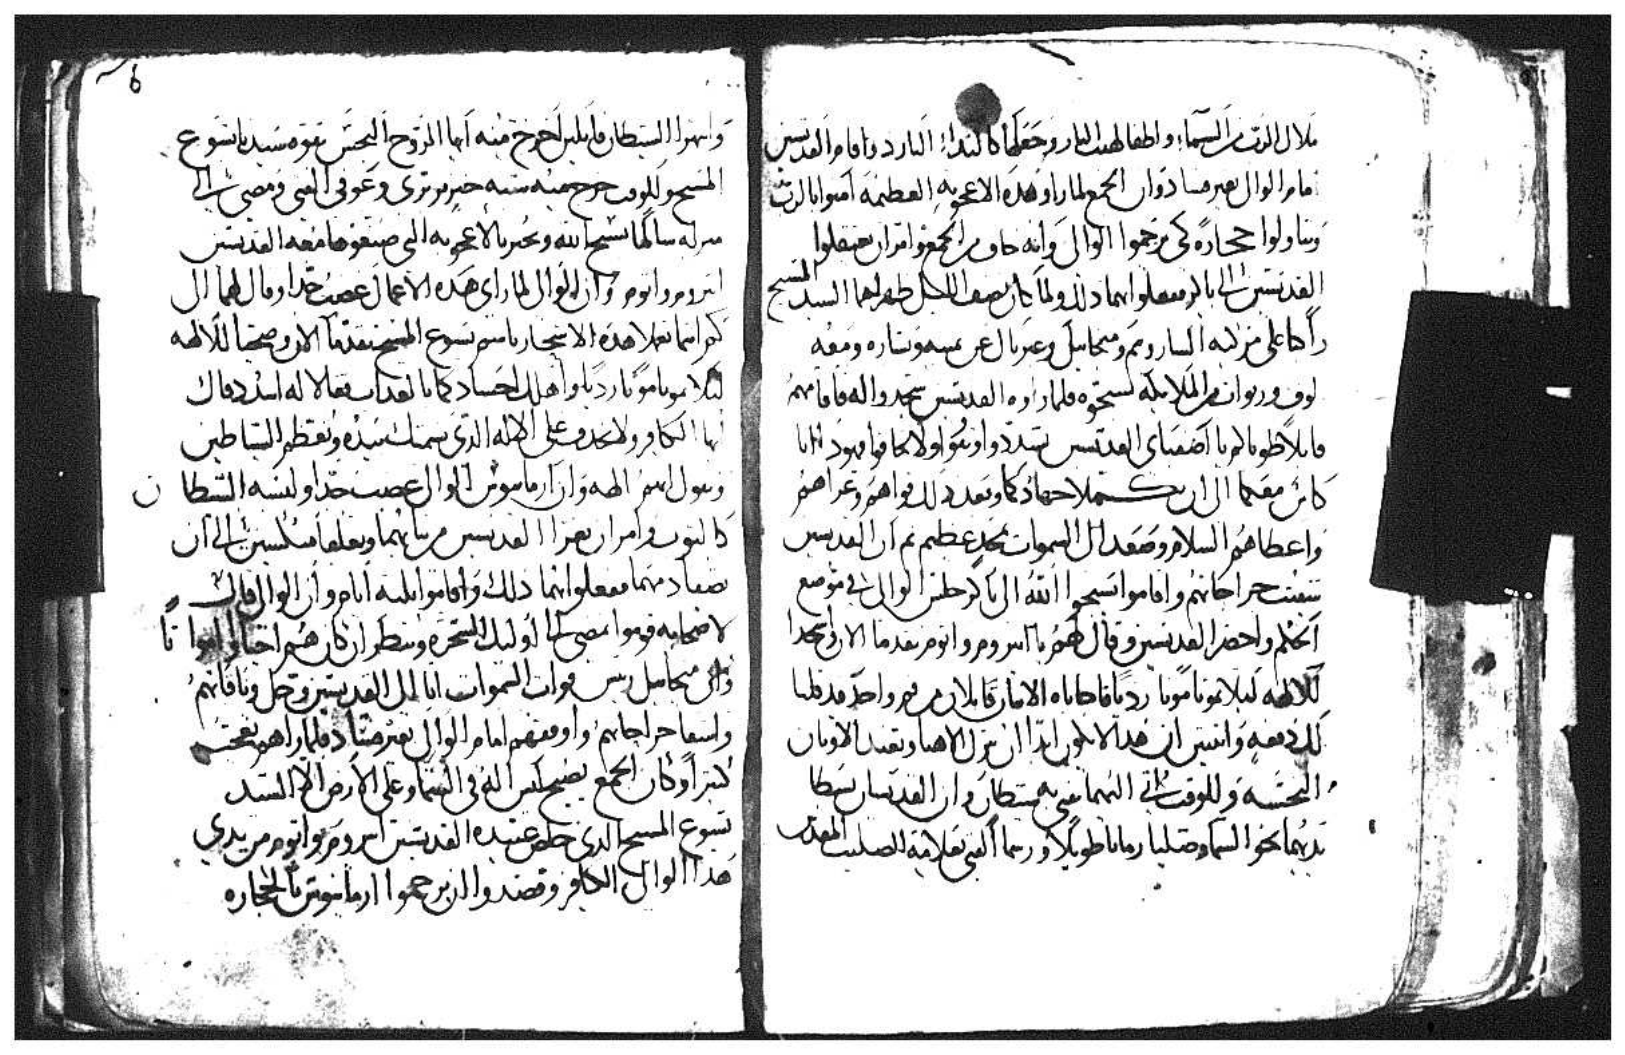 ملاك الرب من السماء واطفا لهيب النار وجعلها كالندا البارد واقام القديسين
امام الوالي بغير فساد وان الجمع لما راو هذه الاعجوبه العظيمه امنوا بالرب
وتناولوا حجاره كي يرجموا الوالي وانه خاف من الجمع وامر ان يعتقلوا
القديسين الي باكر ففعلوا بهما ذلك ولما كان نصف الليل ظهر لهما السيد المسيح
راكبا علي مركبه الشاروبيم وميخاييل وغبريال عن يمينه ويساره ومعه
الوف وربوات من الملايكه يسبحوه فلما راوه القديسين سجدوا له فاقامهم
قايلا طوباكم يا اصفياي القديسين تشددوا وتقووا ولا تخافوا فهوذا انا
كاين معكما الي ان يكملا جهادكما وبعد ذلك قواهم وعزاهم
واعطاهم السلام وصعد الي السموات بمجد عظيم ثم ان القديسين
شفيت جراحاتهم واقاموا يسبحوا الله الي باكر جلس الوالي في موضع
الحكم واحضر القديسين وقال لهم يا اندروم واتوم تقدما الان واسجدا
للالهه ليلا تموتا موتا رديا فاجاباه الاثنان قايلان من فم واحد قد قلنا
لك دفعه واثنين ان هذا لا يكون ابدا ان نترك الاهنا ونعبد الاوثان
النجسه وللوقت اتي اليهما فتي به شيطان وان القديسان بسطا
يديهما نحو السما وصليا زمانا طويلا ورسما الفتي بعلامة الصليب المقدس
وانتهرا الشيطان قايلين اخرج منه ايها الروح النجس بقوه سيدنا يسوع
المسيح وللوقت خرج منه شبه خنزير بري وعوفي الفتي ومضي الي
منزله سالما يسبح الله ويخبر بالاعجوبه التي صنعوها معه القديسين
اندروم واتوم وان الوالي لما راي هذه الاعمال غضب جدا وقال لهما الي
كم انتما تعملا هذه الاسحار باسم يسوع المسيح تقدما الان وضحيا للالهه
ليلا تموتا موتا رديا واهلك اجسادكما بالعذاب فقالا له اسدد فاك
ايها الكافر ولا تجدف علي الاله الذي نسمتك بيده وتعظم الشياطين
وتقول انهم الهه وان ارمانيوس الوالي غضب جدا ولبسه الشيطان
كالثوب وامر ان يعرا القديسين من ثيابهما ويعلقا منكسين الي ان
تصعد دمهما ففعلوا بهما ذلك واقاموا ثلثه ايام وان الوالي قال
لاصحابه قوموا نمضي الي اوليك السحره وننظر ان كان هم احيا او ماتوا
وان ميخاييل ريس قوات السموات اتا الي القديسين وحل وثاقاتهم
واشفا جراحاتهم واوقفهم امام الوالي بغير فساد فلما راهم تعجب
كثيرا وكان الجمع يصيح ليس اله في السما وعلي الارض الا السيد
يسوع المسيح الذي خلص عبيده القديسين اندروم واتوم من يدي
هذا الوالي الكافر وقصدوا ان يرجموا ارمانيوس بالحجاره